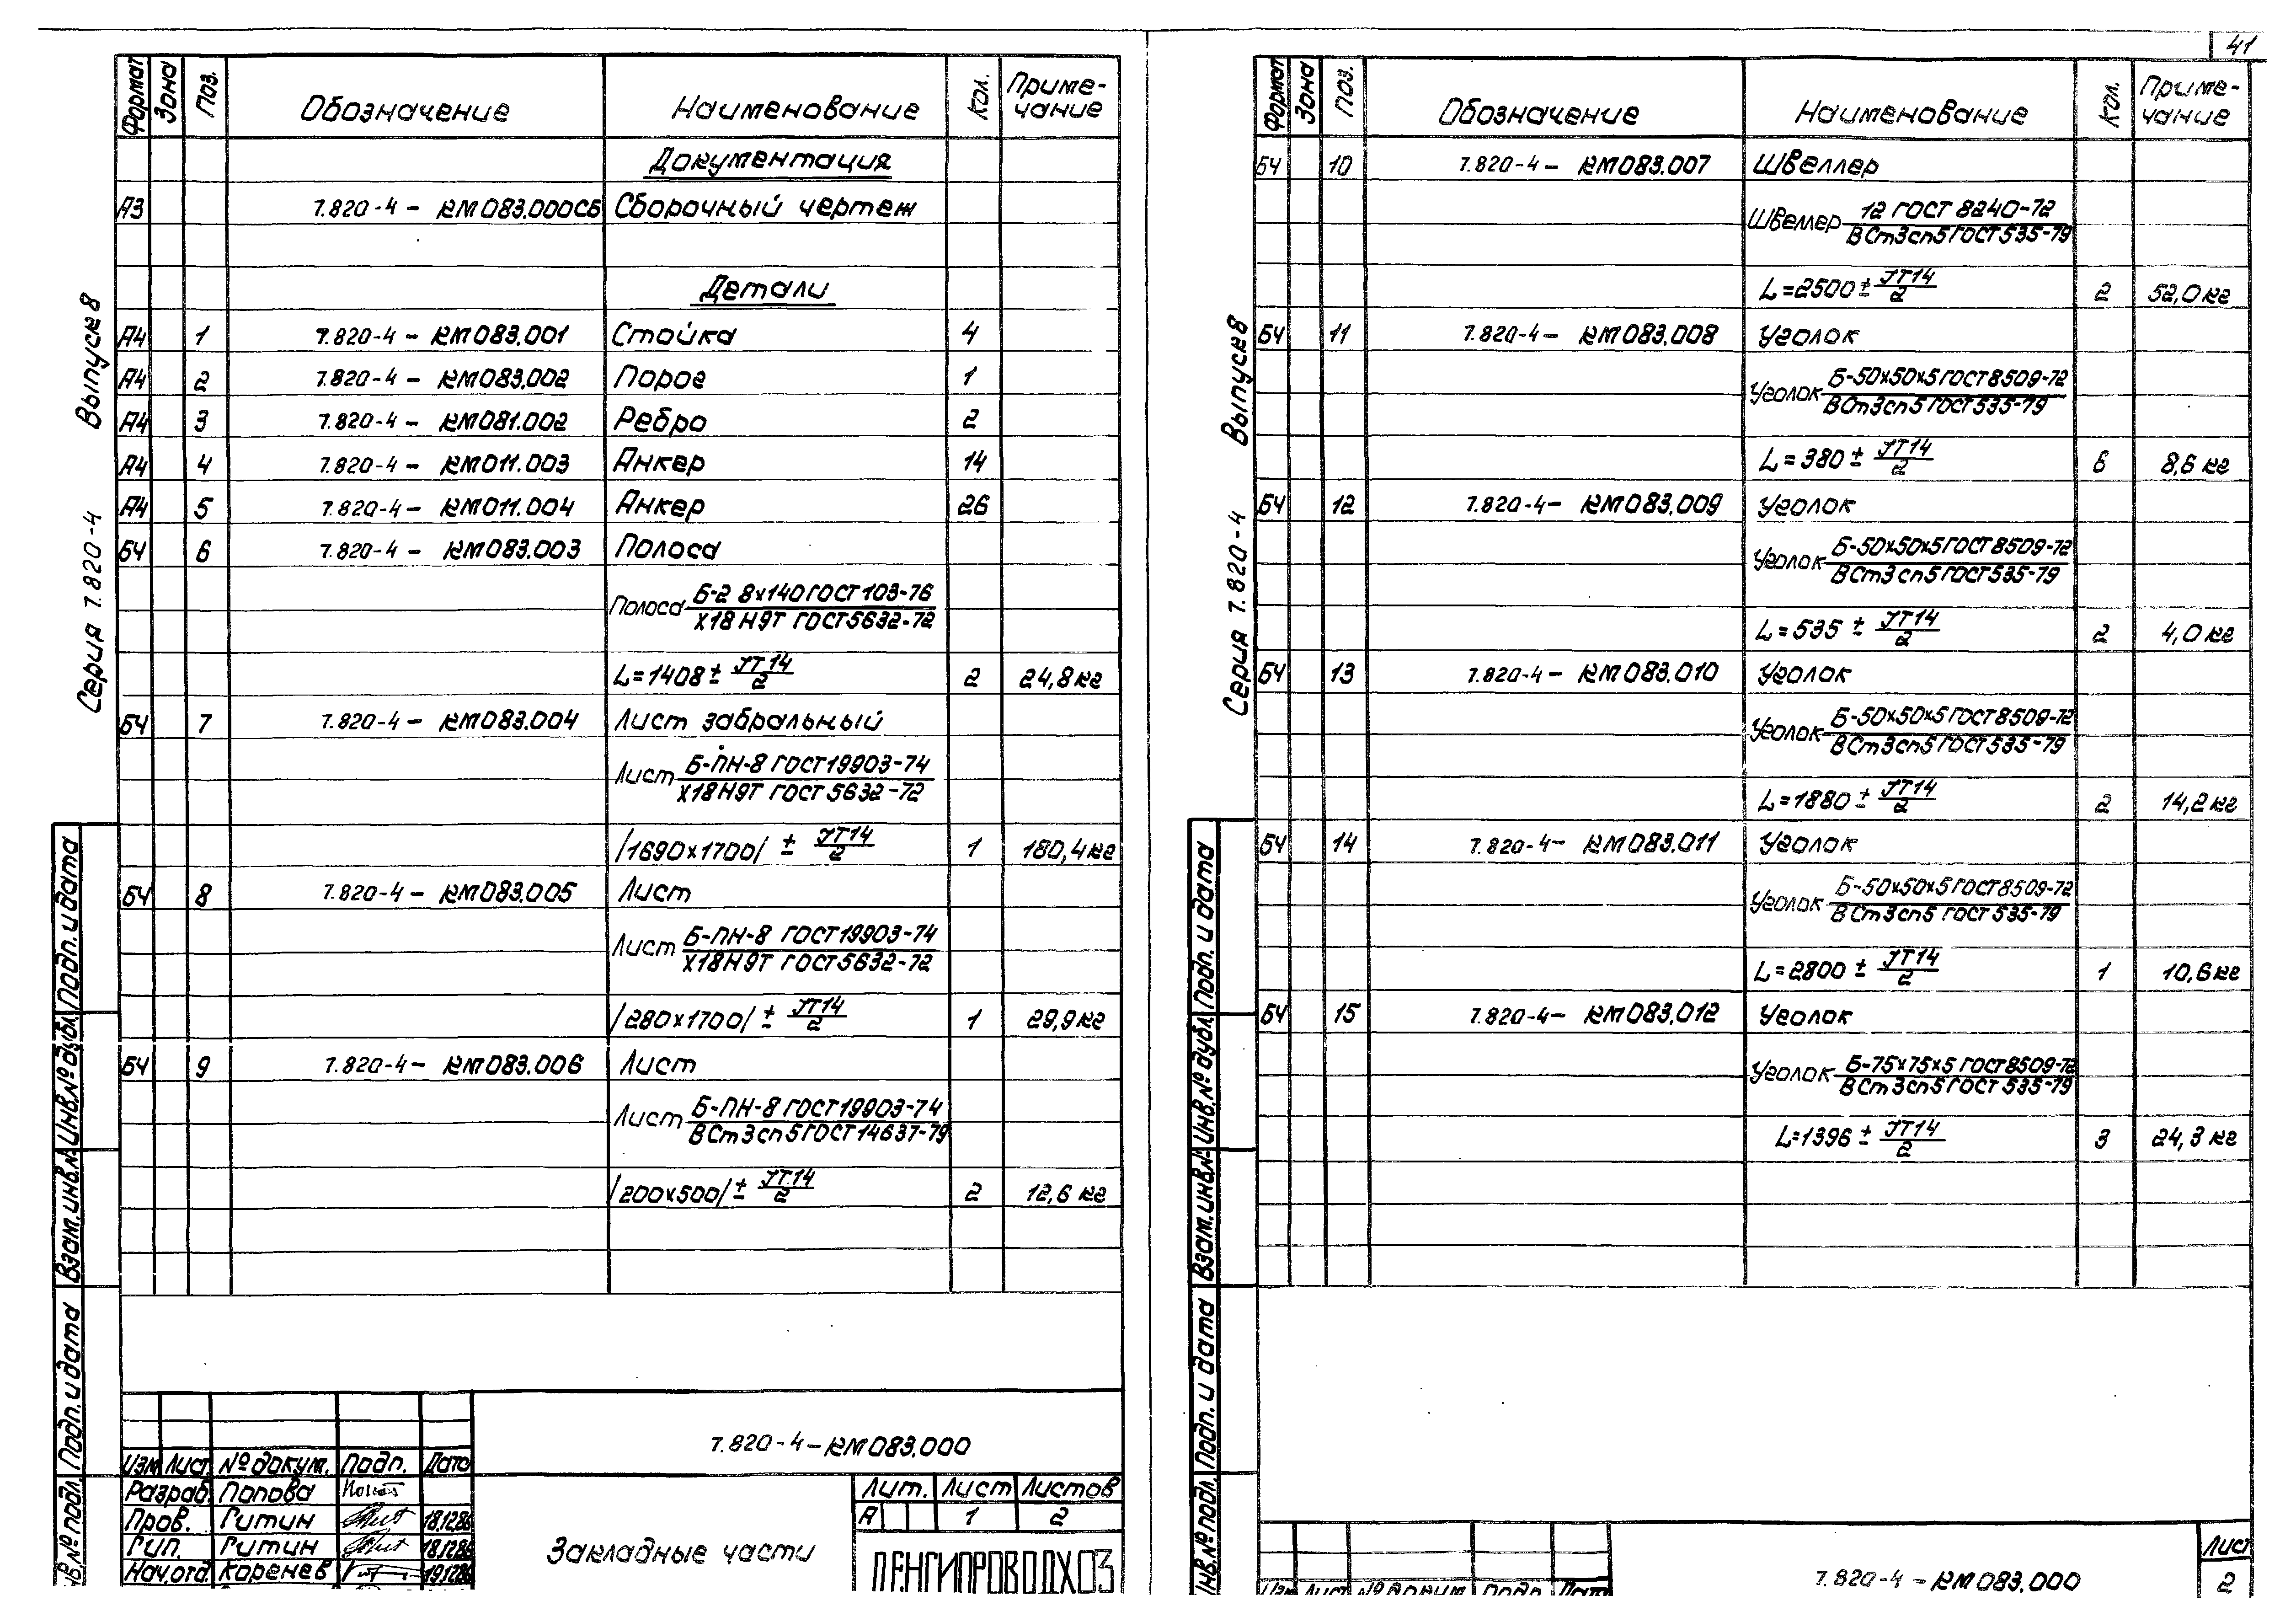 41
Формат Зона Поз. Обозначение Наименование Кол. Приме-чание
Документация
А3 7.820-4 - КМ083.000СБ Сборочный чертеж
Детали
А4 1 7.820-4 - КМ083.001 Стойка 4
А4 2 7.820-4 - КМ083.002 Порог 1
А4 3 7.820-4 - КМ081.002 Ребро 2
А4 4 7.820-4 - КМ011.003 Анкер 14
А4 5 7.820-4 - КМ011.004 Анкер 26
БЧ 6 7.820-4 - КМ083.003 Полоса
Полоса Б-2 8х140 ГОСТ 103-76
Х18Н9Т ГОСТ 5632-72
L=1408 ± JT14/2 2 24,8 кг
БЧ 7 7.820-4 - КМ083.004 Лист забральный
Лист Б-ПН-8 ГОСТ 19903-74
Х18Н9Т ГОСТ 5632-72
/1690х1700/ ± JT14/2 1 180,4 кг
БЧ 8 7.820-4 - КМ083.005 Лист
Лист Б-ПН-8 ГОСТ 19903-74
Х18Н9Т ГОСТ 5632-72
/280х1700/ ± JT14/2 1 29,9 кг
БЧ 9 7.820-4 - КМ083.006 Лист
Лист Б-ПН-8 ГОСТ 19903-74
ВСт3сп5 ГОСТ 14637-79
/200х500/ ± JT14/2 2 12,6 кг
Серия 7.820-4 Выпуск 8
Инв.№ подл. Подп. и дата Взам.инв.№ Инв.№ дубл. Подп. и дата
7.820-4-КМ083.000
Изм Лист № докум. Подп. Дата
Разраб. Попова
Пров. Гитин 18.12.86
Гип. Гитин 18.12.86
Нач.отд. Коренев 19.12.86
Закладные части
Лит. Лист Листов
А 1 2
ЛЕНГИПРОВОДХОЗ
Формат Зона Поз. Обозначение Наименование Кол. Приме-чание
БЧ 10 7.820-4 - КМ083.007 Швеллер
Швеллер 12 ГОСТ 8240-72
ВСт3сп5 ГОСТ 535-79
L=2500 ± JT14/2 2 52,0 кг
БЧ 11 7.820-4 - КМ083.008 Уголок
Уголок Б-50х50х5 ГОСТ 8509-72
ВСт3сп5 ГОСТ 535-79
L=380 ± JT14/2 6 8,6 кг
БЧ 12 7.820-4 - КМ083.009 Уголок
Уголок Б-50х50х5 ГОСТ 8509-72
ВСт3сп5 ГОСТ 535-79
L=535 ± JT14/2 2 4,0 кг
БЧ 13 7.820-4 - КМ083.010 Уголок
Уголок Б-50х50х5 ГОСТ 8509-72
ВСт3сп5 ГОСТ 535-79
L=1880 ± JT14/2 2 14,2 кг
БЧ 14 7.820-4 - КМ083.011 Уголок
Уголок Б-50х50х5 ГОСТ 8509-72
ВСт3сп5 ГОСТ 535-79
L=2800 ± JT14/2 1 10,6 кг
БЧ 15 7.820-4 - КМ083.012 Уголок
Уголок Б-75х75х5 ГОСТ 8509-72
ВСт3сп5 ГОСТ 535-79
L=1396 ± JT14/2 3 24,3 кг
Серия 7.820-4 Выпуск 8
Инв.№ подл. Подп. и дата Взам.инв.№ Инв.№ дубл. Подп. и дата
Изм Лист № докум Подп. Дата
7.820-4-КМ083.000
Лист
2